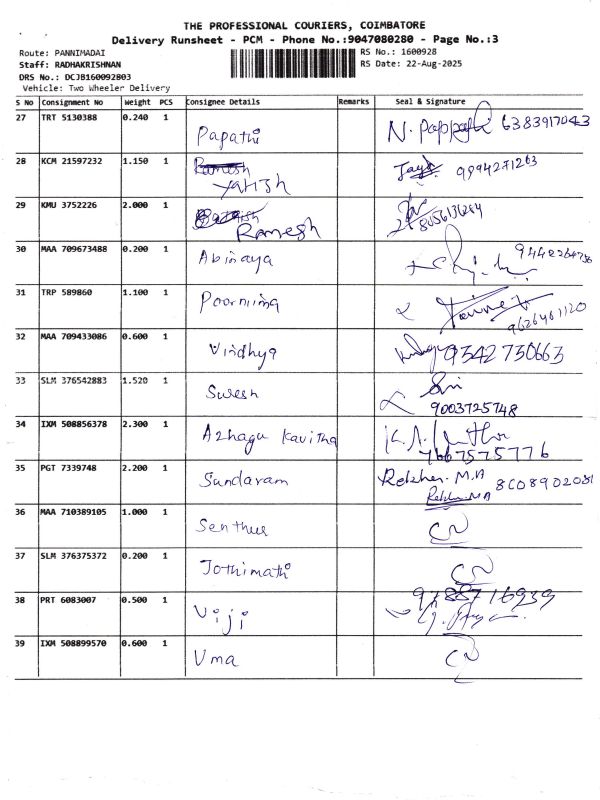 THE PROFESSIONAL COURIERS, COIMBATORE
Delivery Runsheet - PCM - Phone No.:9047080280 - Page No.:3
Route: PANNIMADAI
RS No.: 1600928
Staff: RADHAKRISHNAN
RS Date: 22-Aug-2025
DRS No.: DCJB160092803
Vehicle: Two Wheeler Delivery
S No Consignment No Weight PCS Consignee Details Remarks Seal & Signature
27 TRT 5130388 0.240 1 Papathi 6383917043
28 KCM 21597232 1.150 1 Ramesh
Yatish
29 KMU 3752226 2.000 1 Ramesh
30 MAA 709673488 0.200 1 Abinaya
31 TRP 589860 1.100 1 Poornima
9626461120
32 MAA 709433086 0.600 1 Vindhya 9342730663
33 SLM 376542883 1.520 1 Suresh Sri
9003725748
34 IXM 508856378 2.300 1 Azhagu Kavitha
7667575776
35 PGT 7339748 2.200 1 Sundaram
36 MAA 710389105 1.000 1
37 SLM 376375372 0.200 1 Jothimathi
38 PRT 6083007 0.500 1 Viji
39 IXM 508899570 0.600 1 Uma